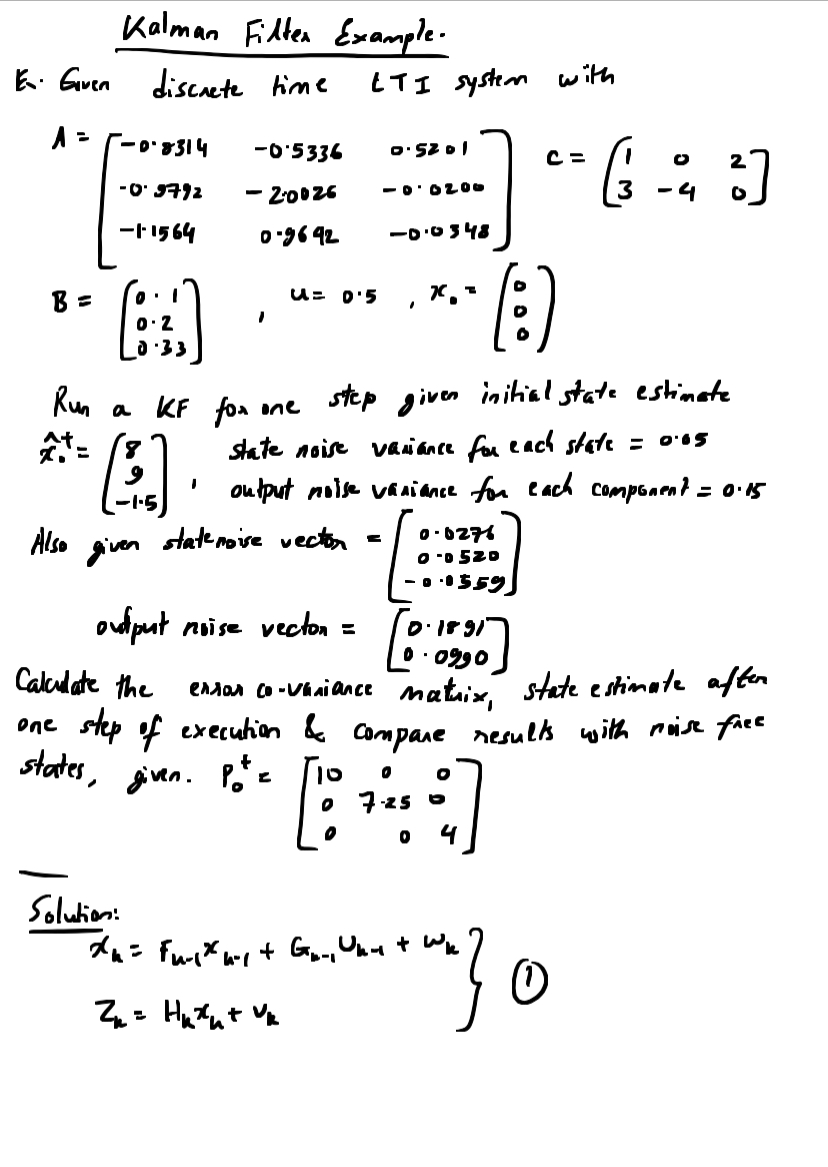 Kalman Filter Example.
Ex. Given discrete time LTI system with
A = [-0.8314 -0.5336 0.5201
-0.9792 -2.0026 -0.0200
-1.1564 0.9692 -0.0348]
C = [1 0 2
3 -4 0]
B = [0.1
0.2
0.33] , u = 0.5 , x₀ = [0
0
0]
Run a KF for one step given initial state estimate
x̂₀⁺ = [8
9
-1.5] , state noise variance for each state = 0.05
output noise variance for each component = 0.15
Also given state noise vector = [0.0276
0.0520
-0.0559]
output noise vector = [0.1891
0.0990]
Calculate the error co-variance matrix, state estimate after
one step of execution & compare results with noise free
states, given. P₀⁺ = [10 0 0
0 7.25 0
0 0 4]
Solution:
xₖ = Fₖ₋₁xₖ₋₁ + Gₖ₋₁Uₖ₋₁ + wₖ
Zₖ = Hₖxₖ + vₖ } ①